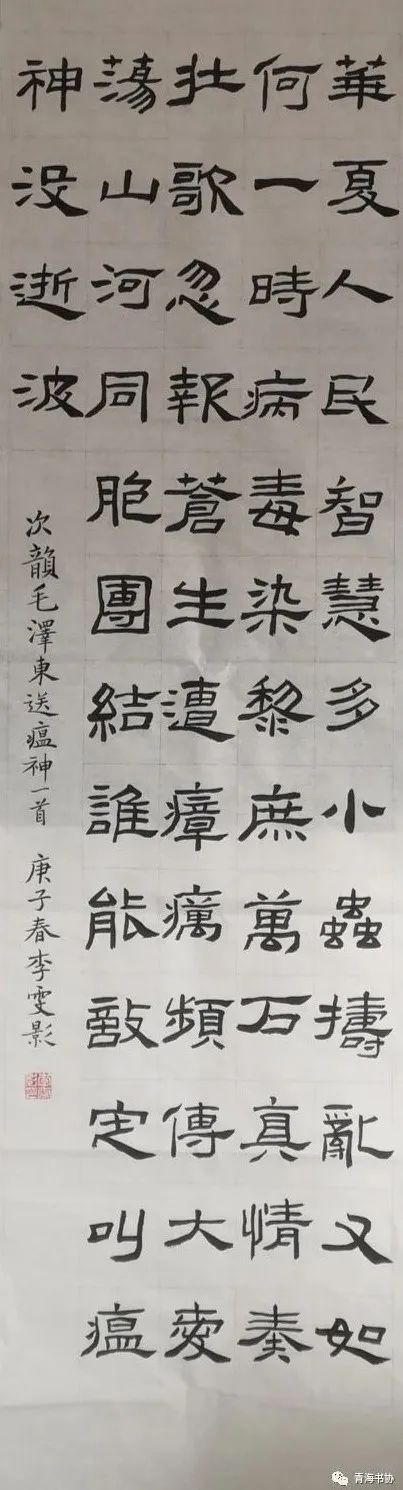 華夏人民智慧多小蟲擣亂又如
何一時病毒染黎庶萬石真情奏
壯歌忽報蒼生遭瘴癘頻傳大愛
蕩山河同胞團結誰能敵定叫瘟
神没逝波
次韻毛澤東送瘟神一首 庚子春李雯影
青海书协